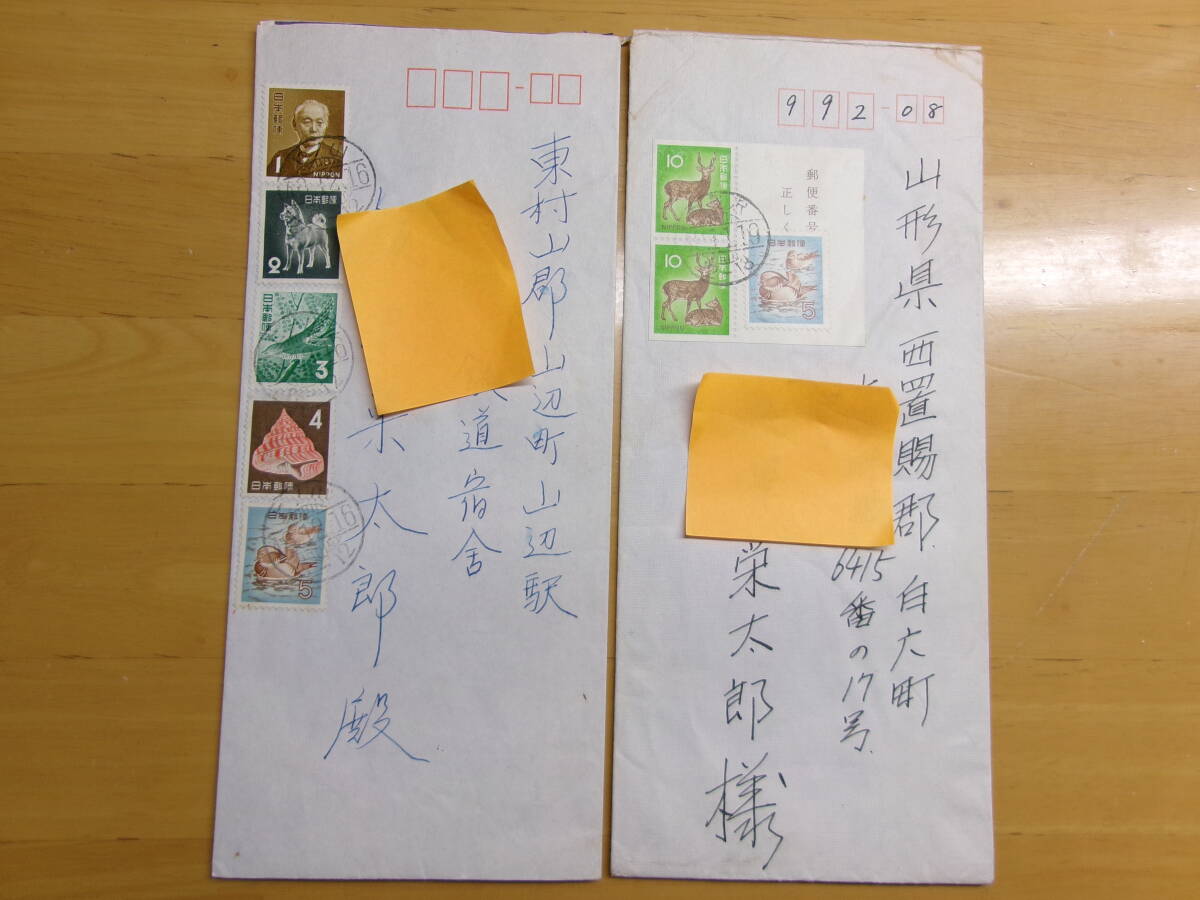 東村山郡山辺町山辺駅
道宿舎
栄太郎殿
日本郵便
1
NIPPON
日本郵便
2
日本郵便
3
4
日本郵便
日本郵便
5
16
12
16
12
992-08
山形県西置賜郡白大町
6415番の17号
栄太郎様
10
日本郵便
NIPPON
10
日本郵便
NIPPON
郵便番号
正しく
日本郵便
5
19